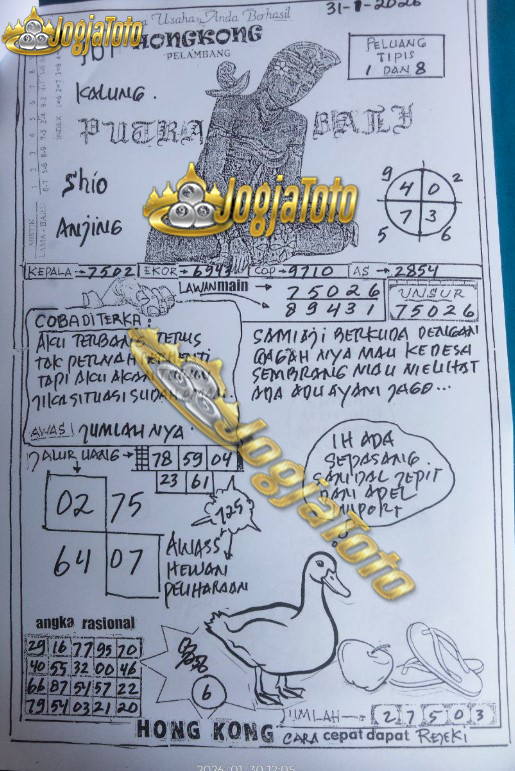 31-1-2026
Usaha, Anda Berhasil
JogjaToto
HONGKONG
PELAMBANG
PELUANG
TIPIS
1 DAN 8
KALUNG.
PUTRA BALI
Shio
ANJING
JogjaToto
9 2
4 0
7 3
5 6
KEPALA → 7502 EKOR → 6943 COP → 9710 AS → 2854
LAWAN main → 75026
89431
UNSUR
75026
COBA DITERKA:
AKU TERBANG TERUS
TAK PERNAH
TAPI AKU AKAN
JIKA SITUASI SUDAH
AWAS! JUMLAHNYA.
SAMIAJI BERKUDA DENGAN
GAGAHNYA MAU KE DESA
SEMBRANG MAU MELIHAT
ADA ADU AYAM JAGO...
JALUR UANG → 78 59 04
23 61
IH ADA
SEPASANG
SANDAL JEPIT
DAN APEL
IMPORT
02 75
64 07
125
AWASS
HEWAN
PELIHARAAN
JogjaToto
angka rasional
29 16 77 95 70
40 55 32 00 46
66 87 54 57 22
79 54 03 21 20
6
JUMLAH → 27503
HONG KONG CARA cepat dapat REJEKI
2026-01-30 12:05